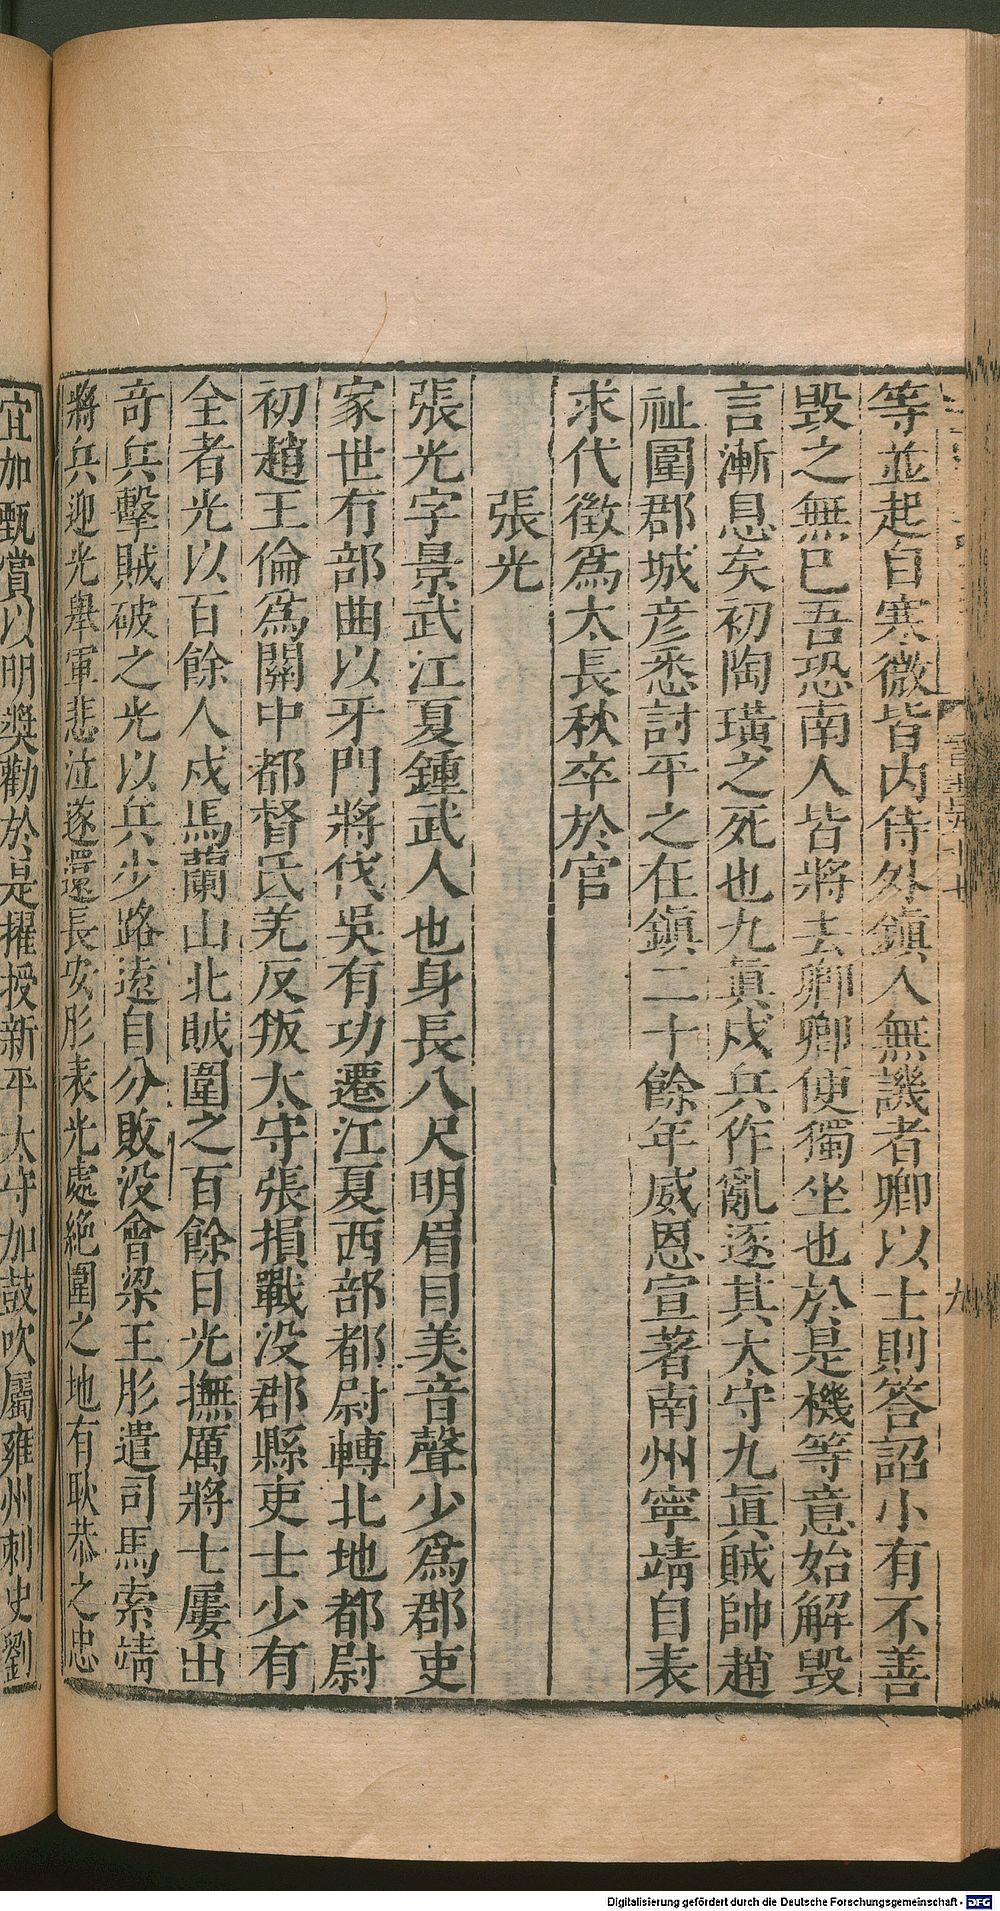 等並起自寒微皆内侍外鎮人無譏者卿以士則答詔小有不善
毀之無已吾恐南人皆將去卿卿便獨坐也於是機等意始解毀
言漸息矣初陶璜之死也九眞戍兵作亂逐其太守九眞賊帥趙
祉圍郡城彦悉討平之在鎮二十餘年威恩宣著南州寧靖自表
求代徵爲大長秋卒於官
張光
張光字景武江夏鍾武人也身長八尺明眉目美音聲少爲郡吏
家世有部曲以牙門將伐吳有功遷江夏西部都尉轉北地都尉
初趙王倫爲關中都督氐羌反叛太守張損戰没郡縣吏士少有
全者光以百餘人戍馬蘭山北賊圍之百餘日光撫厲將士屢出
奇兵擊賊破之光以兵少路遠自分敗没會梁王肜遣司馬索靖
將兵迎光舉軍悲泣遂還長安肜表光處絶圍之地有耿恭之忠
宜加甄賞以明奬勸於是擢授新平太守加鼓吹屬雍州刺史劉
Digitalisierung gefördert durch die Deutsche Forschungsgemeinschaft - DFG